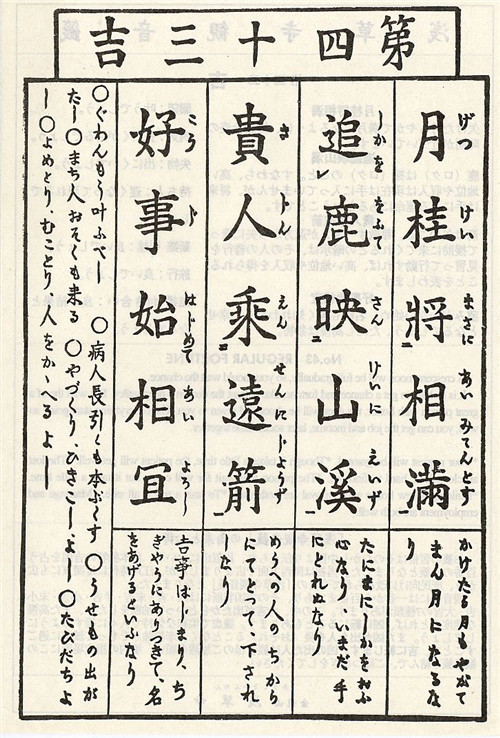 第四十三吉
月桂將相満
げつ けい まさに あい みてんとす
追鹿映山溪
しかををふて さん けいに えいず
貴人乗遠箭
き じん えん せんに じようず
好事始相冝
こう じ はじめて あい よろし
かけたる月もやがて
まん月になるな
り
たにまに しかをおふ
心なり、いまだ手
にとれぬなり
めうへの人のちから
にて 下され
るなり
吉事はじまり、ち
ぎやうにありつきて、名
をあげるといふなり
〇ぐわんもう叶ふべし 〇病人長引くも本ぷくす 〇うせもの出が
たし 〇まち人おそくも来る 〇やづくり、ひきこしよし 〇たびだちよ
し 〇よめどり、むことり人をかゝへるよし